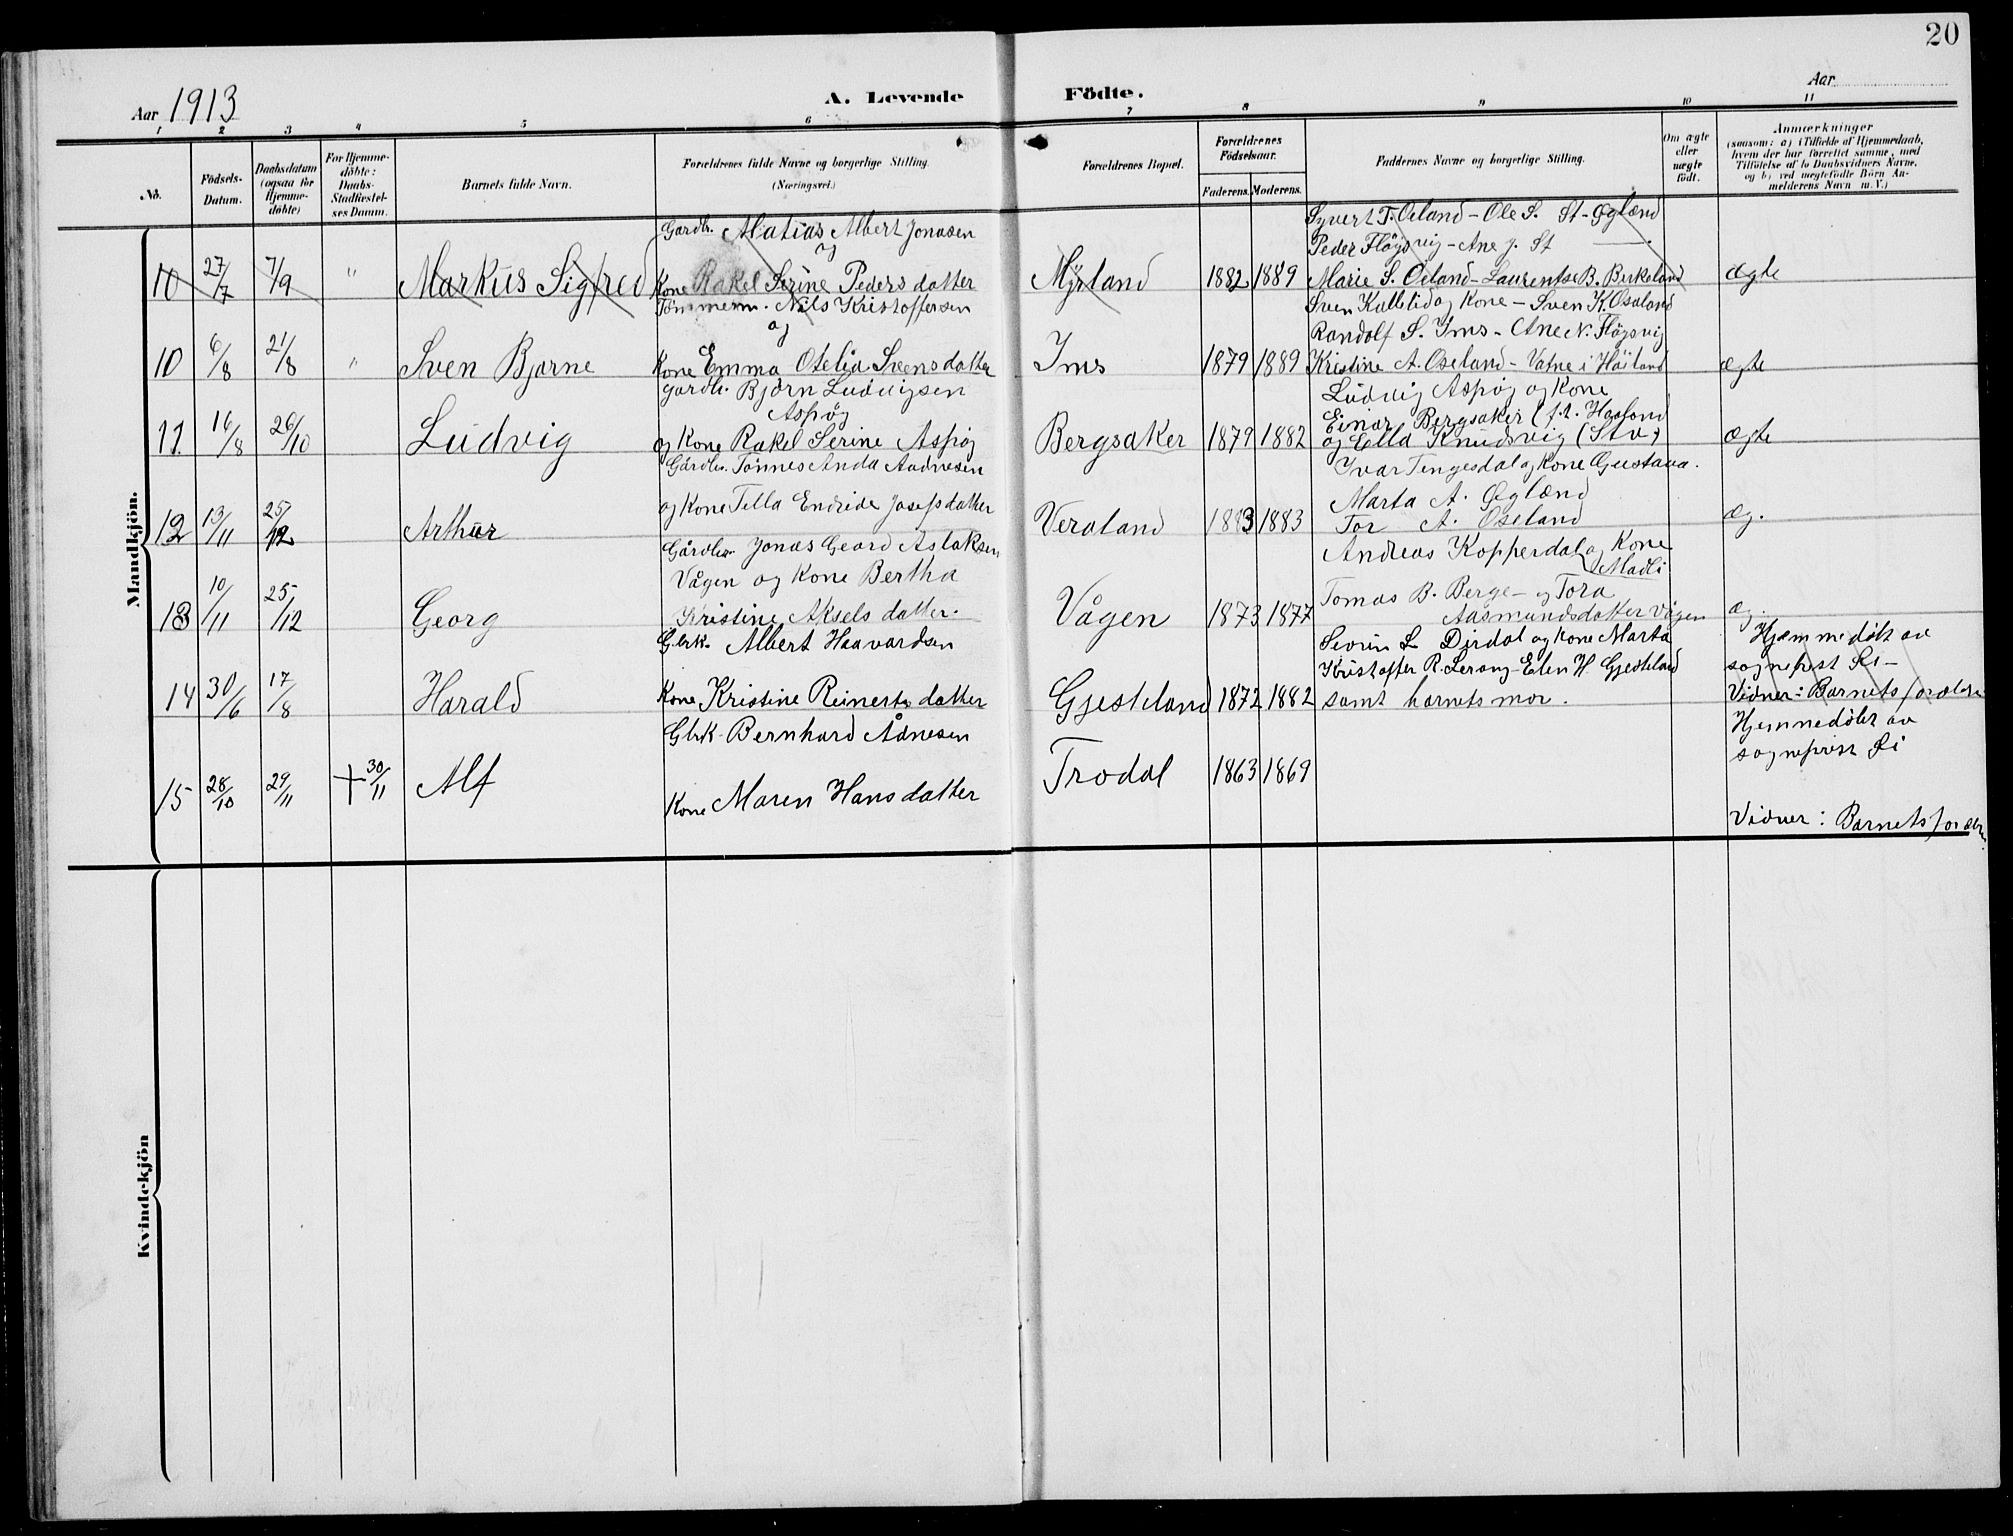 20
Aar 1913
A. Levende
Födte.
Aar
1 2 3 4 5 6 7 8 9 10 11
No.
Födsels-
Datum.
Daabsdatum
(ogsaa for
Hjemme-
döbte)
For Hjemme-
döbte:
Daabs-
Stadfæstel-
ses Datum.
Barnets fulde Navn.
Forældrenes fulde Navne og borgerlige Stilling.
(Næringsvei.)
Forældrenes Bopæl.
Forældrenes
Födselsaar.
Faderens. Moderens.
Faddernes Navne og borgerlige Stilling.
Om ægte
eller
uægte
födt.
Anmærkninger
(saasom: a) i Tilfælde af Hjemmedaab,
hvem der har forrettet samme, med
Tilföielse af to Daabsvidners Navne,
og b) ved uægtefödte Börn An-
melderens Navn m. V.)
Mandkjön.
10 27/7 7/9 " Markus Sigfred
Gardbr. Matias Albert Jonasen
og
Kone Rakel Serine Pedersdatter
Myrland 1882 1889
Syvert T. Oeland - Ole S. St-Ogland
Peder Fløysvig - Ane J. St —
Marie S. Oeland - Laurentse B. Birkeland
ægte
10 6/8 21/8 " Sven Bjarne
Tömmerm. Nils Kristoffersen
og
Kone Emma Otelia Svensdatter
Ims 1879 1889
Sven Kallelid og Kone - Sven K. Oseland
Randolf S. Ims - Ane N. Fløysvig
Kristine A. Oseland - Vatne i Høiland
ægte
11. 16/8 26/10 Ludvig
Gardbr. Bjørn Ludvigsen
Aspøy
og Kone Rakel Serine Aspøy
Bergsaker 1879 1882
Ludvig Aspøy og Kone
Einar Bergsaker (f. t. Haaland
og Ella Knudsvig (Stv)
ægte
12 13/11 25/12 Arthur
Gårdbr. Tønnes Anda Aadnesen
og Kone Tella Endride Josefsdatter
Veraland 1883 1883
Ivar Tengesdal og Kone Gustava.
Marta A. Ogland
Tor A. Oseland
æg.
13 10/11 25/12 Georg
Gårdbr. Jonas Geard Aslaksen
Vågen og Kone Bertha
Kristine Akselsdatter.
Vågen 1873 1877
Andreas Kopperdal og Kone
Madli
Tomas B. Berge - og Tora
Aasmundsdatter Vågen
æg.
14 30/6 17/8 Harald
Gbrk. Albert Haavardsen
Kone Kristine Reinertsdatter
Gjesteland 1872 1882
Severin L Dirdal og Kone Marta
Kristoffer R. Lerang - Elen H. Gjesteland
samt barnets mor.
Hjemmedøbt av
sogneprest Li -
Vidner: Barnets forældre
15 28/10 29/11 + 30/11 Alf
Gbrk. Bernhard Ådnesen
Kone Maren Hansdatter
Trodal 1863 1869
Hjemmedøbt av
sogneprest Li
Vidner: Barnets forældre.
Kvindekjön